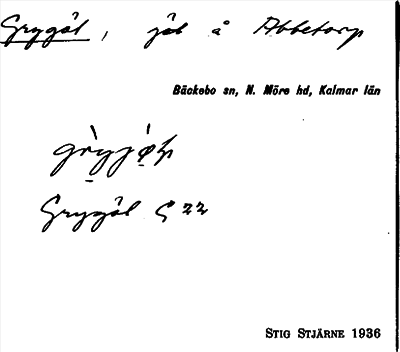 Grygöl, jb å Abbetorp
Bäckebo sn, N. Möre hd, Kalmar län
Grygöl G 22
STIG STJÄRNE 1936